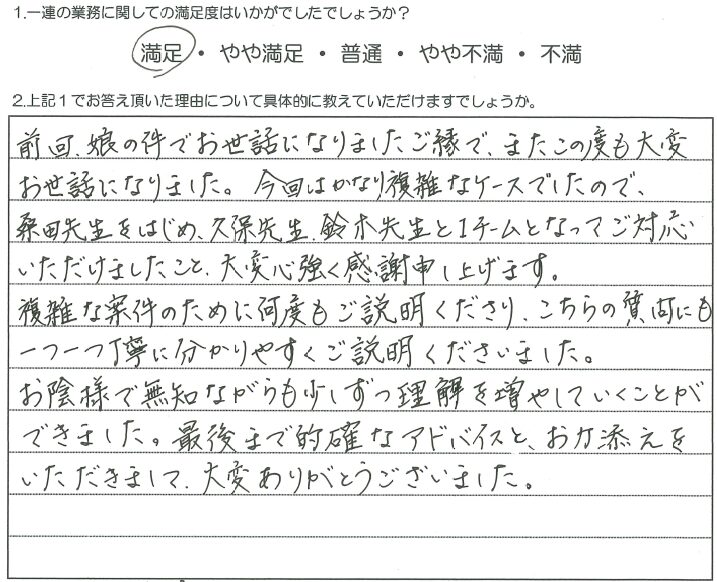 1.一連の業務に関しての満足度はいかがでしたでしょうか？
満足・やや満足・普通・やや不満・不満
2.上記１でお答え頂いた理由について具体的に教えていただけますでしょうか。
前回、娘の件でお世話になりましたご縁で、またこの度も大変
お世話になりました。今回はかなり複雑なケースでしたので、
桑田先生をはじめ、久保先生、鈴木先生と1チームとなってご対応
いただけましたこと、大変心強く感謝申し上げます。
複雑な案件のために何度もご説明くださり、こちらの質問にも
一つ一つ丁寧に分かりやすくご説明くださいました。
お陰様で無知ながらも少しずつ理解を増やしていくことが
できました。最後まで的確なアドバイスと、お力添えを
いただきまして、大変ありがとうございました。